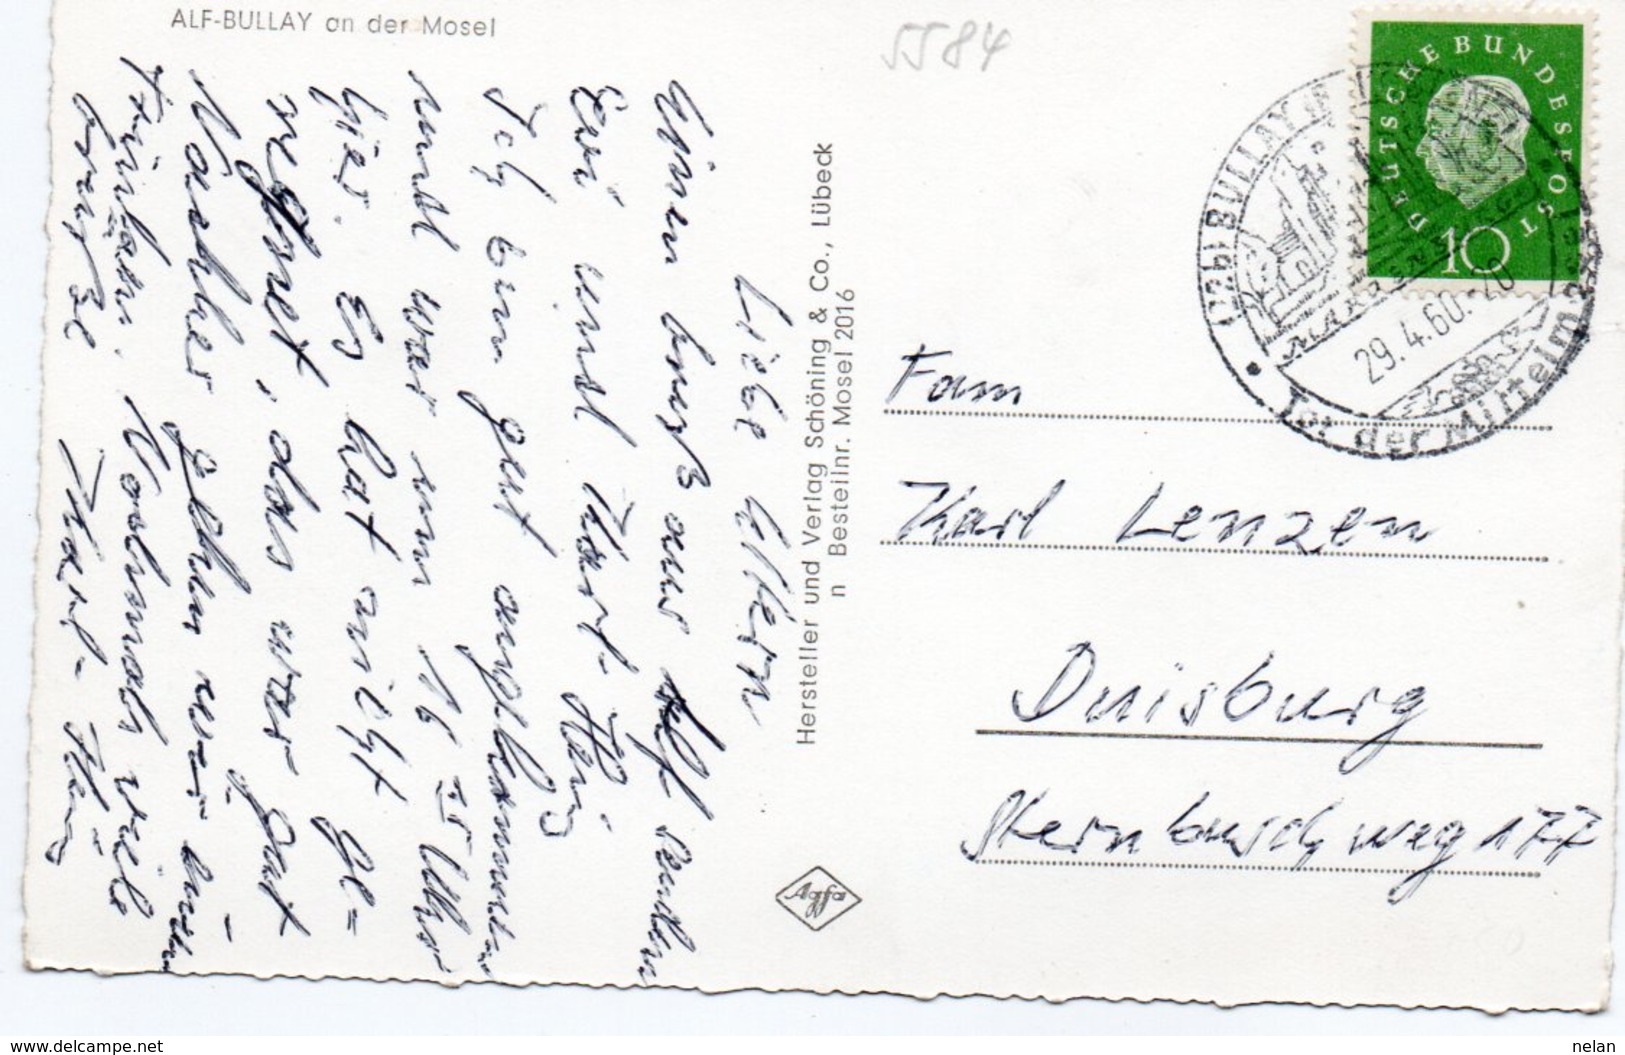 ALF-BULLAY an der Mosel
5584
DEUTSCHE BUNDESPOST
10
(22b) BULLAY
29.4.60.-20
Tor der Mittelmosel
Liebe Eltern
Einen Gruß aus Alf senden
Evi und Karl-Heinz
Ich bin gut angekommen
und war um 16 25 Uhr
hier. Es hat nicht ge=
regnet, das war gut
Nachher gehen wir einen
trinken. Nochmals viele
Grüße Karl-Heinz
Hersteller und Verlag Schöning & Co., Lübeck
n Bestellnr. Mosel 2016
Agfa
Fam
Karl Lenzen
Duisburg
Sternbuschweg 177
www.delcampe.net
nelan